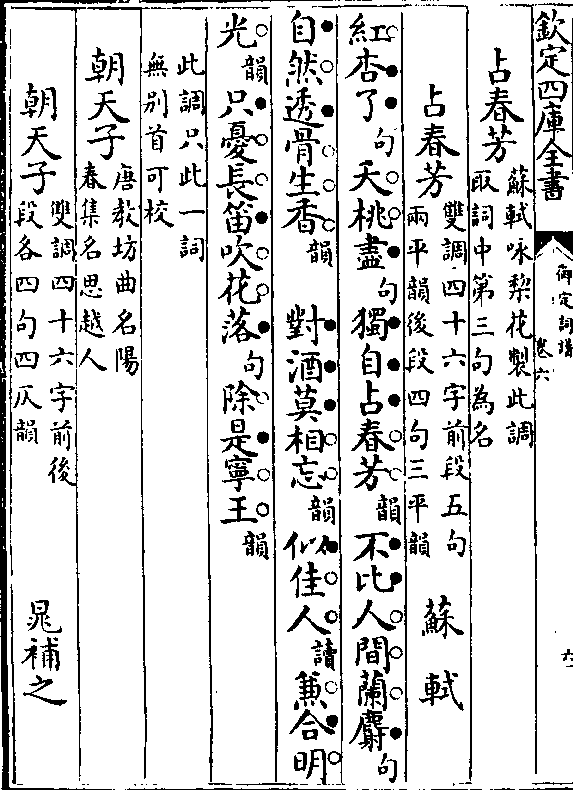 欽定四庫全書
御定詞譜
卷六
占春芳
蘇軾咏梨花製此調
取詞中第三句為名
占春芳
雙調四十六字前段五句
兩平韻後段四句三平韻
蘇軾
紅杏了句夭桃盡句獨自占春芳韻不比人間蘭麝句
自然透骨生香韻 對酒莫相忘韻似佳人讀兼合明
光韻只憂長笛吹花落句除是寧王韻
此調只此一詞
無別首可校
朝天子
唐教坊曲名陽
春集名思越人
朝天子
雙調四十六字前後
段各四句四仄韻
晁補之